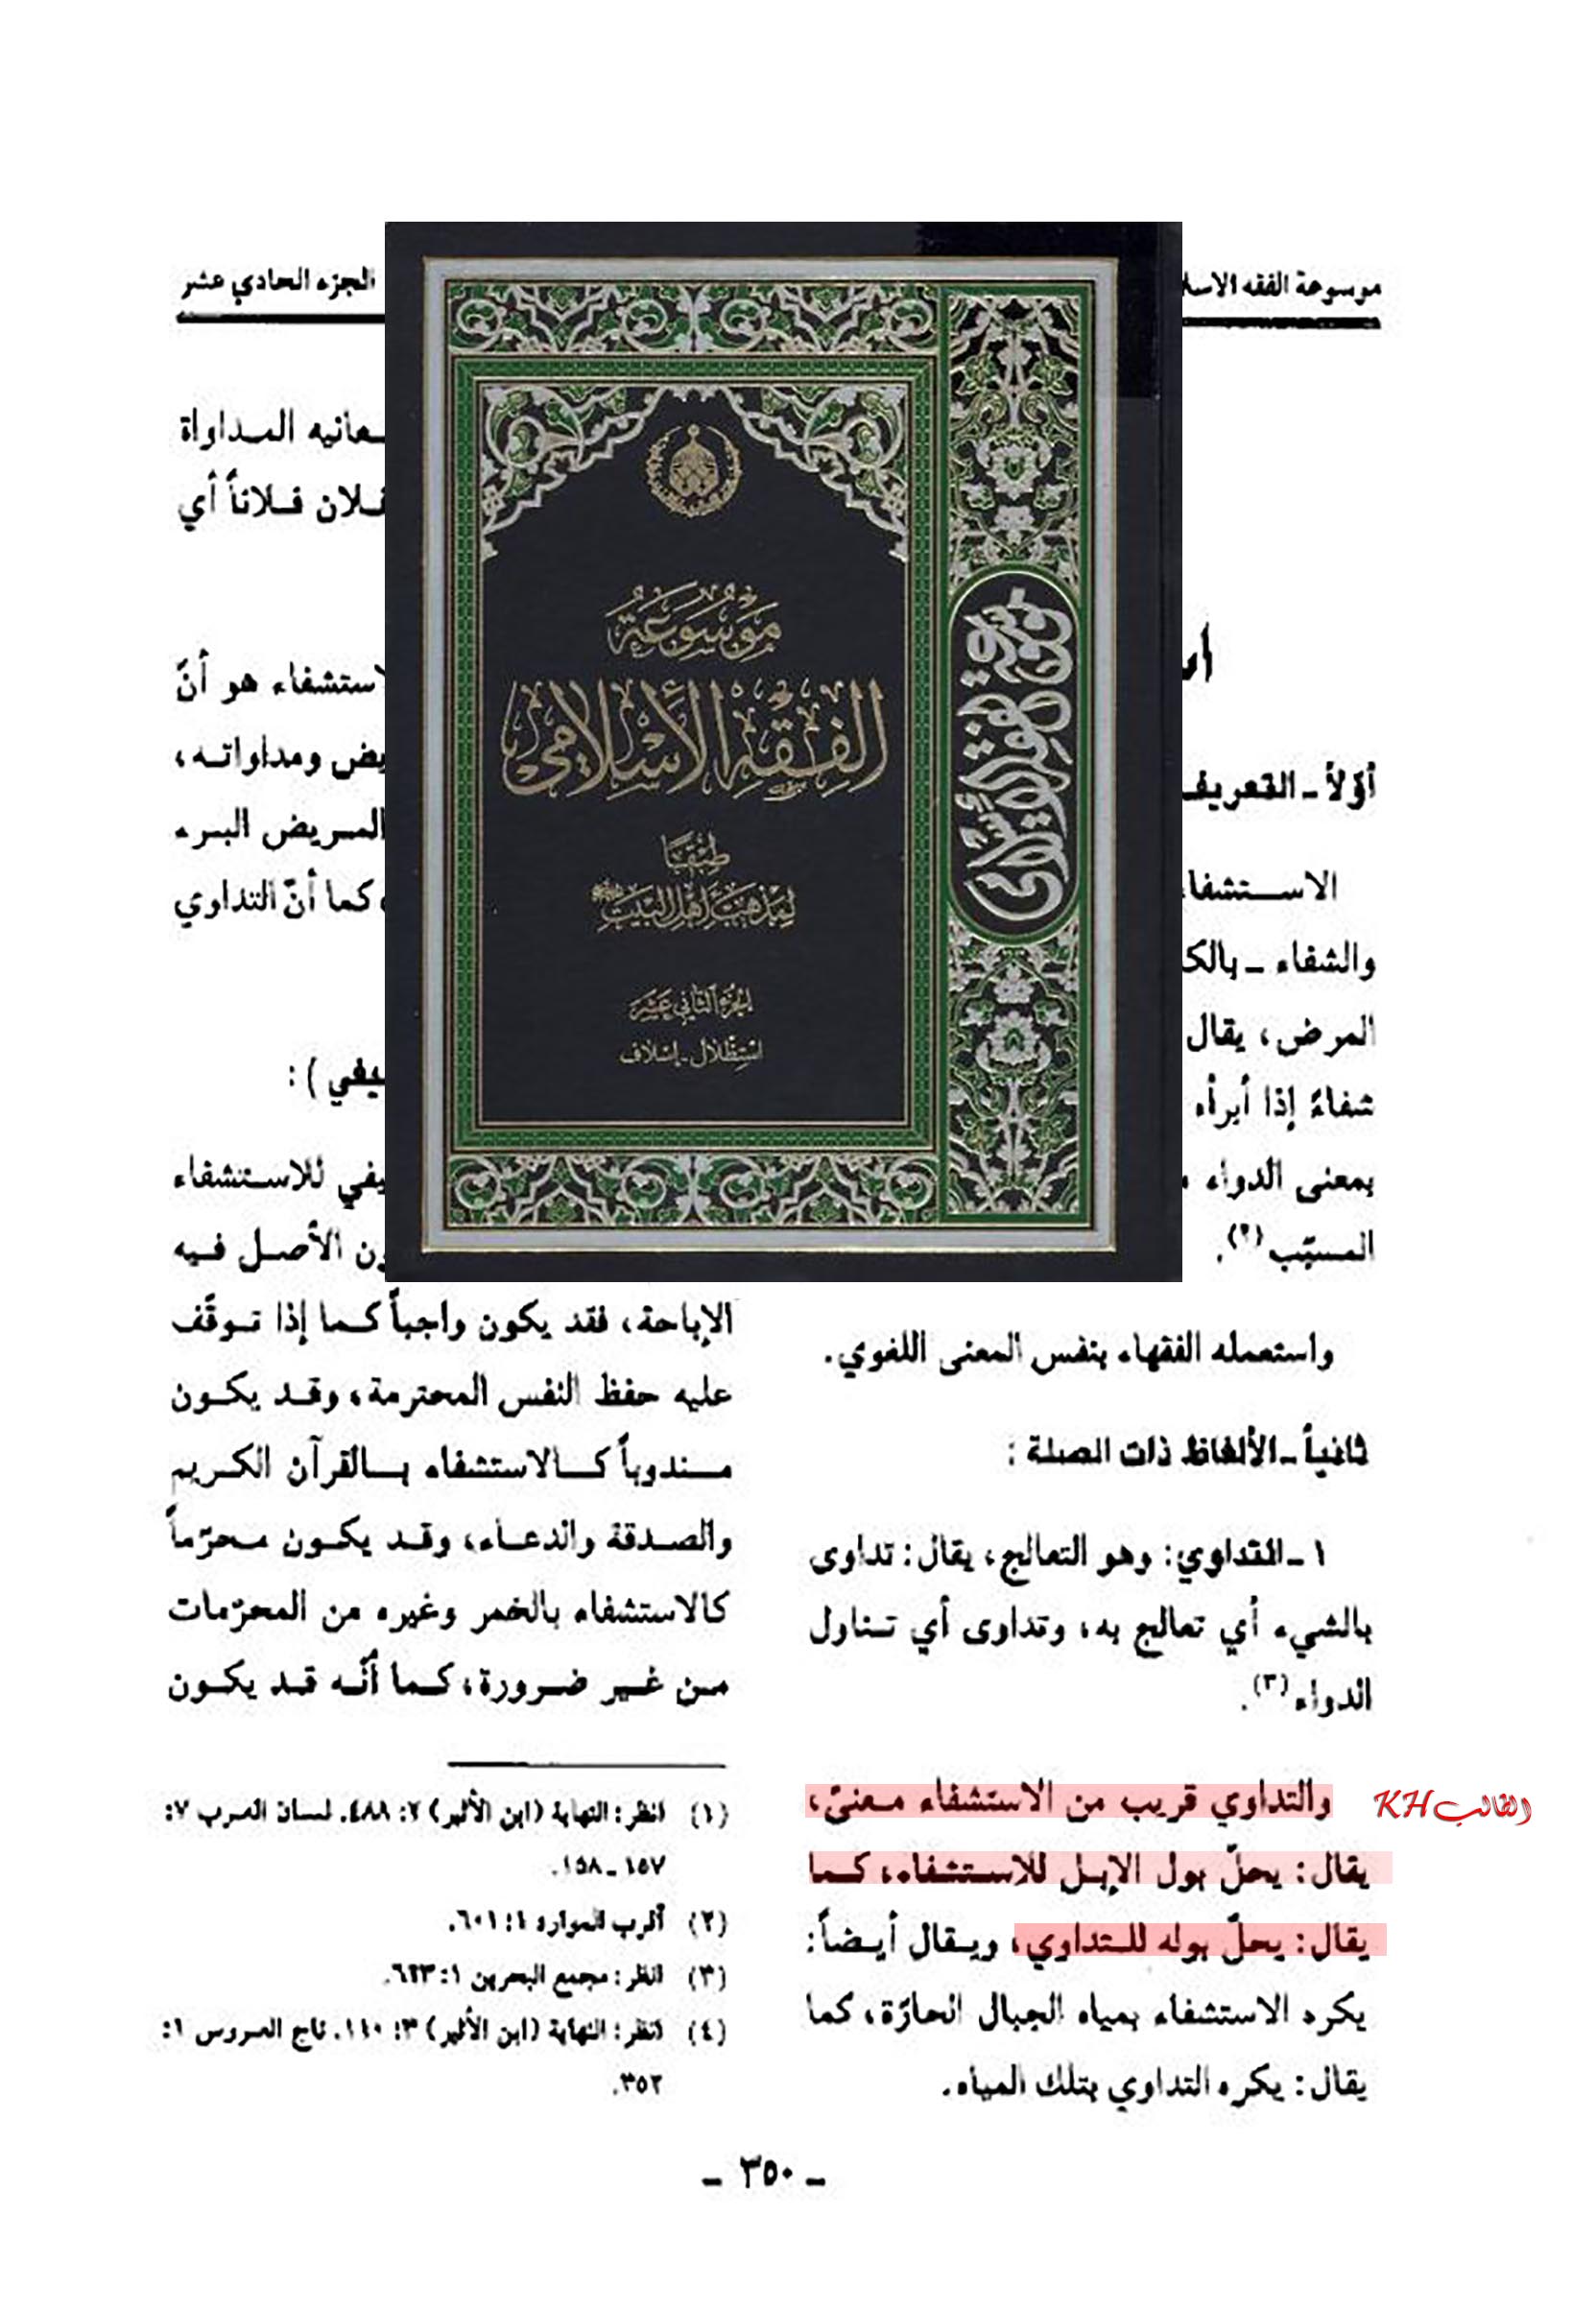 موسوعة الفقه الاسلا
الجزء الحادي عشر
أوّلاً ـ التعريف
الاستشفاء
والشفاء ـ بالك
المرض، يقال
شفاءً إذا أبرأه
بمعنى الدواء
المسبّب (٢).
واستعمله الفقهاء بنفس المعنى اللغوي.
ثانياً ـ الألفاظ ذات الصلة :
١ ـ التداوي: وهو التعالج، يقال: تداوى
بالشيء أي تعالج به، وتداوى أي تناول
الدواء (٣).
والتداوي قريب من الاستشفاء معنىً،
يقال: يحلّ بول الإبل للاستشفاء، كما
يقال: يحلّ بوله للتداوي، ويقال أيضاً:
يكره الاستشفاء بمياه الجبال الحارّة، كما
يقال: يكره التداوي بتلك المياه.
عانيه المداواة
فلان فلاناً أي
استشفاء هو أنّ
يض ومداواته،
المريض البرء
كما أنّ التداوي
يفي ) :
يفي للاستشفاء
ون الأصل فيه
الإباحة، فقد يكون واجباً كما إذا توقّف
عليه حفظ النفس المحترمة، وقد يكون
مندوباً كالاستشفاء بالقرآن الكريم
والصدقة والدعاء، وقد يكون محرّماً
كالاستشفاء بالخمر وغيره من المحرّمات
من غير ضرورة، كما أنّه قد يكون
(١) انظر: النهاية (ابن الأثير) ٢: ٤٨٨. لسان العرب ٧:
١٥٧ ـ ١٥٨.
(٢) أقرب الموارد ١: ٦٠١.
(٣) انظر: مجمع البحرين ١: ٦٢٣.
(٤) انظر: النهاية (ابن الأثير) ٣: ١١٠. تاج العروس ١:
٣٥٢.
ـ ٣٥٠ ـ
مَوْسُوعَةُ
الفِقْهِ الإسْلَامِي
طِبْقًا
لِمَذْهَبِ أَهْلِ البَيْتِ
الجزء الثاني عشر
استظلال ـ إسلاف
موسوعة الفقه الإسلامي
KH